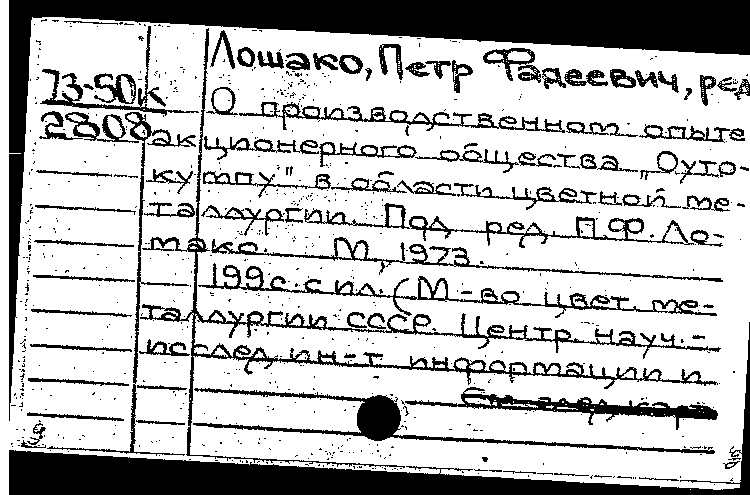 Ломако, Петр Фадеевич, ред
73-50к
2808
О производственном опыте
акционерного общества „Оуто-
кумпу" в области цветной ме-
таллургии. Под ред. П.Ф. Ло-
мако. М, 1973.
199с. с ил. (М-во цвет. ме-
таллургии СССР. Центр. науч.-
исслед. ин-т информации и
См. след. карт